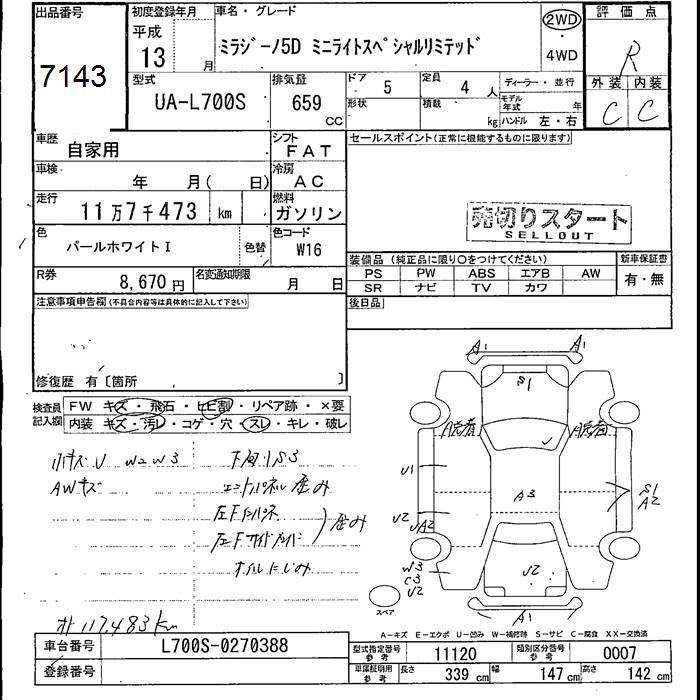 出品番号 初度登録年月 車名・グレード 2WD 評価点
7143 平成 13 月 ミラジーノ5D ミニライトスペシャルリミテッド ・ 4WD R
型式 排気量 ドア 5 定員 4 人 ディーラー・並行 外装 内装
UA-L700S 659 CC 形状 積載 kg モデル年式 年 C C
ハンドル 左・右
車歴 自家用 シフト FAT セールスポイント(正常に機能するものに限ります)
車検 年 月( 日) 冷房 AC
走行 11万7千473 km 燃料 ガソリン 売切りスタート
SELLOUT
色 パールホワイトI 色替 色コード W16
装備品 (純正品に限り○をつけてください) 新車保証書
R券 8,670円 名変通知期限 月 日 PS PW ABS エアB AW 有・無
SR ナビ TV カワ
注意事項申告欄(不具合内容等は具体的に記入して下さい) 後日品
修復歴 有〔箇所 〕
検査員記入欄 FW キズ・飛石・ヒビ割・リペア跡・×要
内装 キズ・汚レ・コゲ・穴・スレ・キレ・破レ
A1 A1
S1
小キズ U W2W3 下回りS3
AWキズ エンドパネル歪み
左Fインパネ
左Fサイドメンバ 歪み
オイルにじみ
U1 A3 S1
A2
U2 UA2
W3
C3
U2 U2
A1
スペア
オ117,483km
A-キズ E-エクボ U-凹み W-補修跡 S-サビ C-腐食 XX-交換済
車台番号 L700S-0270388 型式指定番号 参考 11120 類別区分番号 参考 0007
登録番号 車庫証明用 参考 長さ 339 cm 幅 147 cm 高さ 142 cm